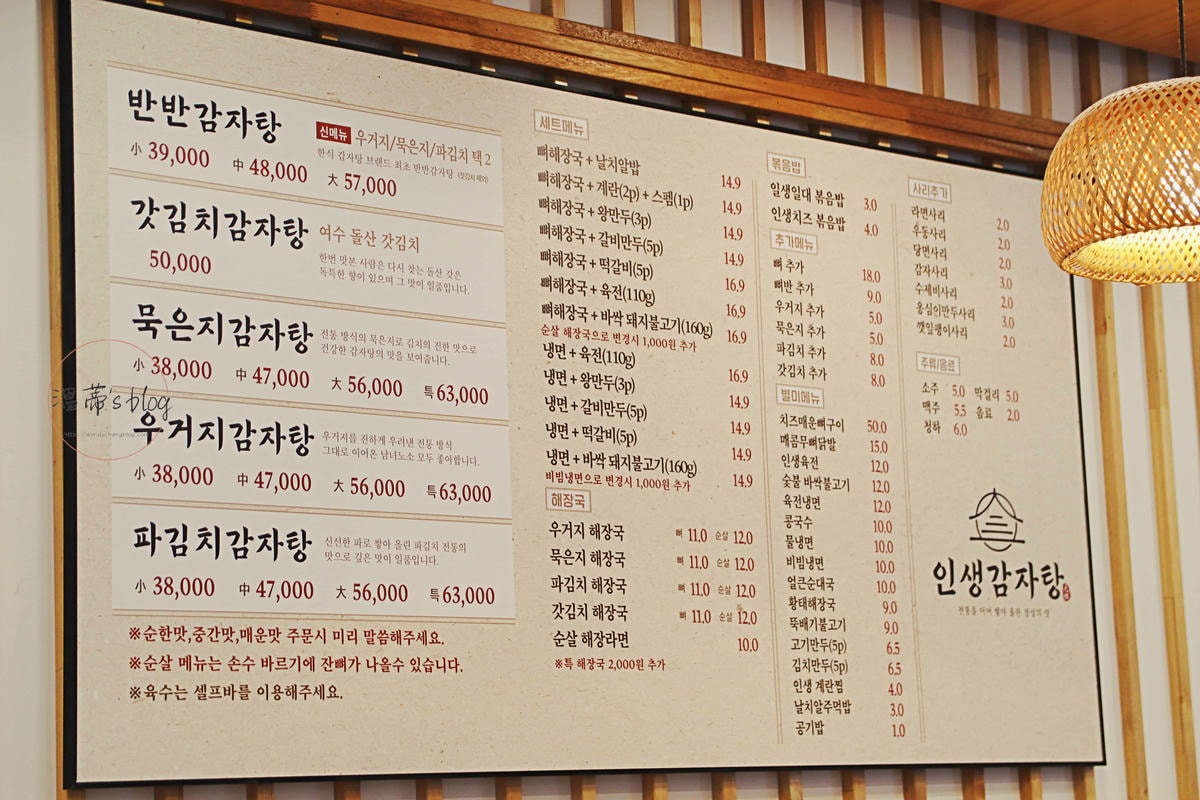 반반감자탕
신메뉴 우거지/묵은지/파김치 택 2
한식 감자탕 브랜드 최초 반반감자탕 (갓김치 제외)
小 39,000 中 48,000 大 57,000
갓김치감자탕 여수 돌산 갓김치
50,000
한번 맛본 사람은 다시 찾는 돌산 갓은
독특한 향이 있으며 그 맛이 일품입니다.
묵은지감자탕
전통 방식의 묵은지로 김치의 진한 맛으로
건강한 감자탕의 맛을 보여줍니다.
小 38,000 中 47,000 大 56,000 특 63,000
우거지감자탕
우거지를 진하게 우려낸 전통 방식
그대로 이어온 남녀노소 모두 좋아합니다.
小 38,000 中 47,000 大 56,000 특 63,000
파김치감자탕
신선한 파로 쌓아 올린 파김치 전통의
맛으로 깊은 맛이 일품입니다.
小 38,000 中 47,000 大 56,000 특 63,000
※순한맛,중간맛,매운맛 주문시 미리 말씀해주세요.
※순살 메뉴는 손수 바르기에 잔뼈가 나올수 있습니다.
※육수는 셀프바를 이용해주세요.
세트메뉴
뼈해장국 + 날치알밥 14.9
뼈해장국 + 계란(2p) + 스팸(1p) 14.9
뼈해장국 + 왕만두(3p) 14.9
뼈해장국 + 갈비만두(5p) 14.9
뼈해장국 + 떡갈비(5p) 16.9
뼈해장국 + 육전(110g) 16.9
뼈해장국 + 바싹 돼지불고기(160g) 16.9
순살 해장국으로 변경시 1,000원 추가
냉면 + 육전(110g) 16.9
냉면 + 왕만두(3p) 14.9
냉면 + 갈비만두(5p) 14.9
냉면 + 떡갈비(5p) 14.9
냉면 + 바싹 돼지불고기(160g) 14.9
비빔냉면으로 변경시 1,000원 추가
해장국
우거지 해장국 뼈 11.0 순살 12.0
묵은지 해장국 뼈 11.0 순살 12.0
파김치 해장국 뼈 11.0 순살 12.0
갓김치 해장국 뼈 11.0 순살 12.0
순살 해장라면 10.0
※특 해장국 2,000원 추가
볶음밥
일생일대 볶음밥 3.0
인생치즈 볶음밥 4.0
추가메뉴
뼈 추가 18.0
뼈반 추가 9.0
우거지 추가 5.0
묵은지 추가 5.0
파김치 추가 8.0
갓김치 추가 8.0
별미메뉴
치즈매운뼈구이 50.0
매콤무뼈닭발 15.0
인생육전 12.0
숯불 바싹불고기 12.0
육전냉면 12.0
콩국수 10.0
물냉면 10.0
비빔냉면 10.0
얼큰순대국 10.0
황태해장국 9.0
뚝배기불고기 9.0
고기만두(5p) 6.5
김치만두(5p) 6.5
인생 계란찜 4.0
날치알주먹밥 3.0
공기밥 1.0
사리추가
라면사리 2.0
우동사리 2.0
당면사리 2.0
감자사리 3.0
수제비사리 2.0
옹심이만두사리 3.0
깻잎팽이사리 2.0
주류/음료
소주 5.0 막걸리 5.0
맥주 5.5 음료 2.0
청하 6.0
인생감자탕
전통을 이어 쌓아 올린 정성의 맛
溫蒂's blog